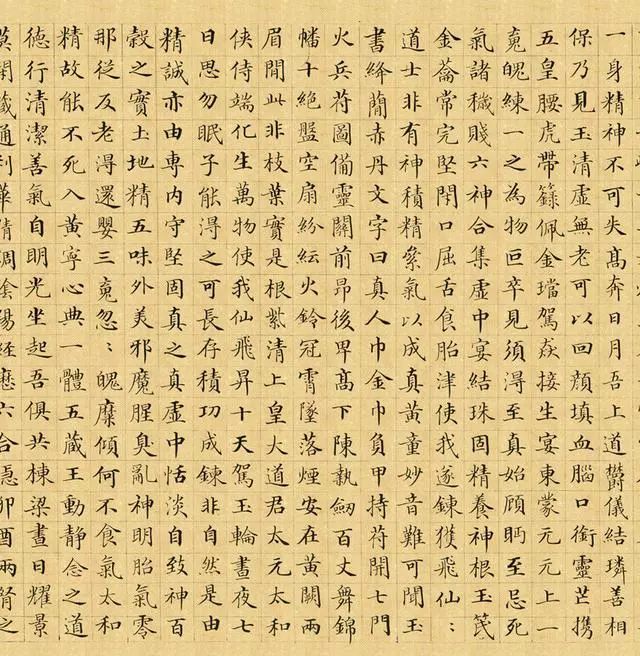 一身精神不可失髙奔日月吾上道鬱儀結璘善相
保乃見玉清虛無老可以回顏填血腦口銜靈芒携
五皇腰虎帶籙佩金璫駕欻接生宴東蒙元元上一
䰟魄練一之為物叵卒見須得至真始顧眄至忌死
氣諸穢賤六神合集虛中宴結珠固精養神根玉笢
金籥常完堅閇口屈舌食胎津使我遂鍊獲飛仙〻
道士非有神積精絫氣以成真黃童妙音難可聞玉
書絳簡赤丹文字曰真人巾金巾負甲持苻開七門
火兵苻圖備靈關前昂後卑髙下陳執劒百丈舞錦
幡十絕盤空扇紛紜火鈴冠霄墜落煙安在黃闕兩
眉閒此非枝葉實是根紫清上皇大道君太元太和
俠侍端化生萬物使我仙飛昇十天駕玉輪晝夜七
日思勿眠子能得之可長存積功成鍊非自然是由
精誠亦由專內守堅固真之真虛中恬淡自致神百
穀之實土地精五味外美邪魔腥臭亂神明胎氣零
那從反老得還嬰三䰟忽〻魄糜傾何不食氣太和
精故能不死入黃寧心典一體五藏王動靜念之道
德行清潔善氣自明光坐起吾俱共棟梁晝日耀景
莫閇藏通利華精調陰陽經歷六合隱卯酉兩腎之